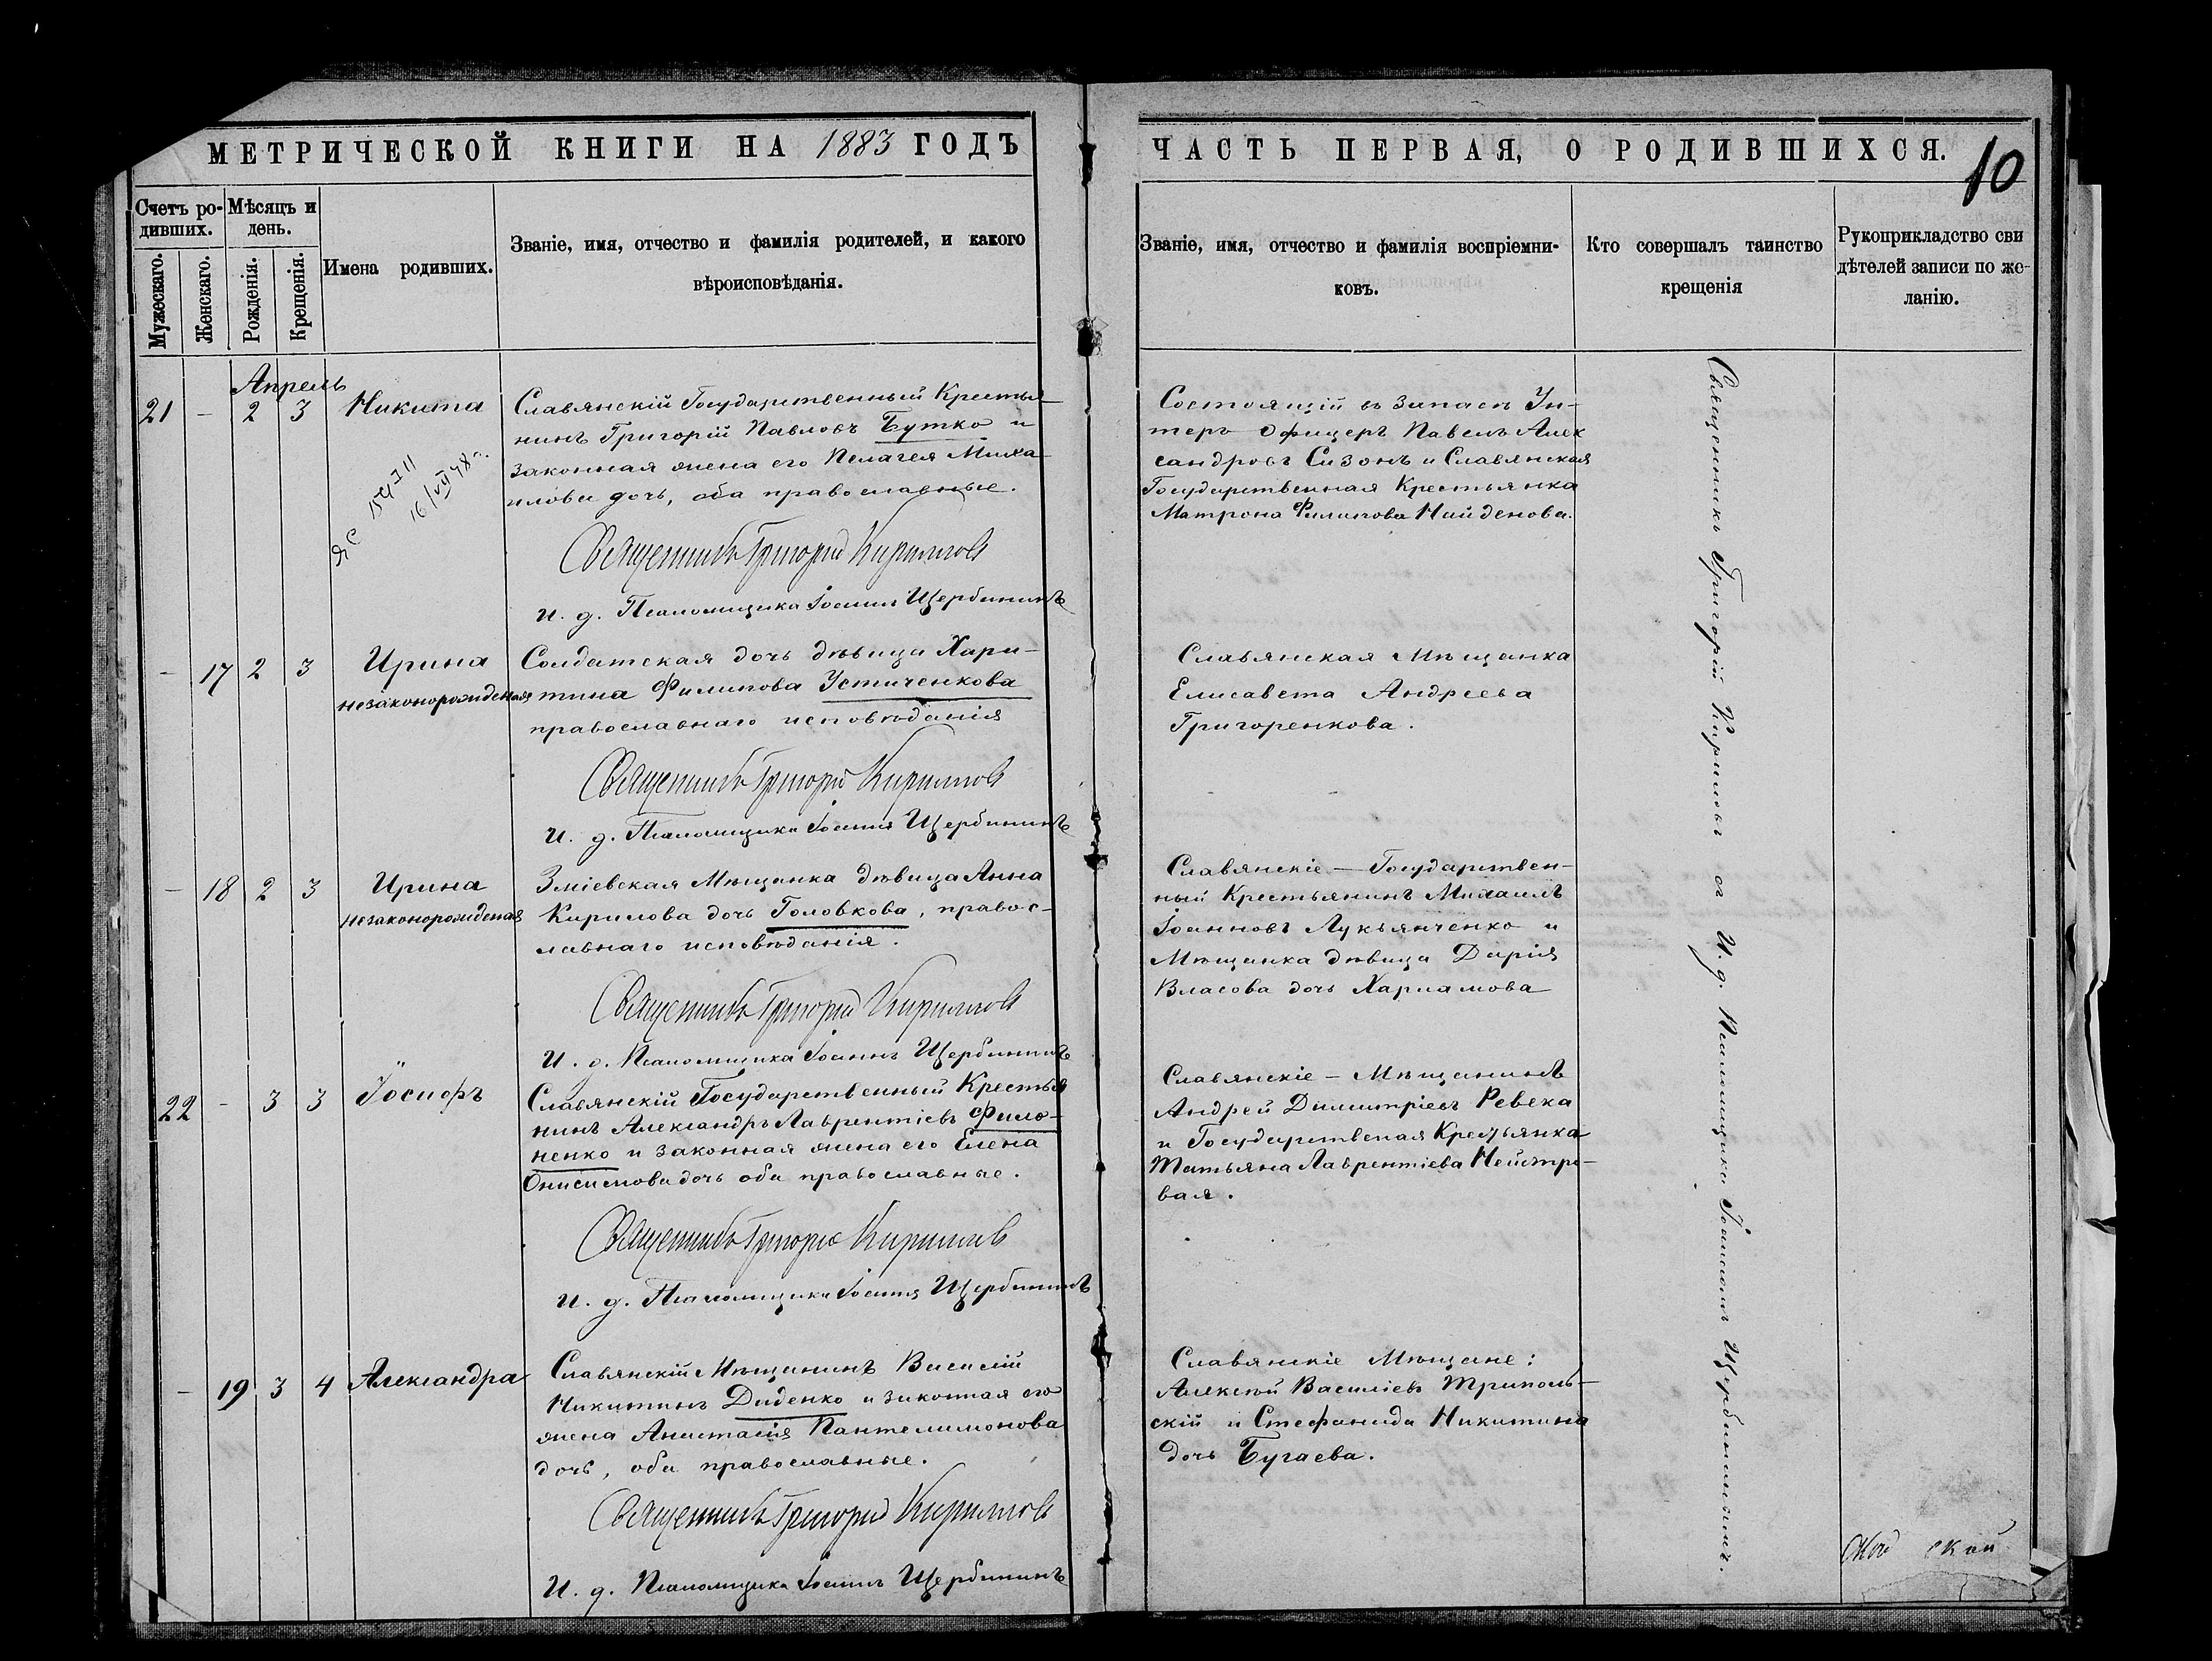 МЕТРИЧЕСКОЙ КНИГИ НА 1883 ГОДЪ
Счетъ ро-
дивших.
Мѣсяцъ и
день.
Мужескаго.
Женскаго.
Рожденія.
Крещенія.
Имена родивших.
Званіе, имя, отчество и фамилія родителей, и какого
вѣроисповѣданія.
Апрель
21 - 2 3 Никита
Славянскій Государственный Крестья-
нинъ Григорій Павловъ Бутко и
законная жена его Пелагея Миха-
илова дочь, оба православные.
16/VII 48 г.
Священникъ Григорій Кириловъ
И. д. Псаломщика Іоаннъ Щербининъ
- 17 2 3 Ирина
незаконорожденая
Солдатская дочь дѣвица Хари-
тина Филипова Устиченкова
православнаго исповѣданія
Священникъ Григорій Кириловъ
И. д. Псаломщика Іоаннъ Щербининъ
- 18 2 3 Ирина
незаконорожденая
Зміевская Мѣщанка дѣвица Анна
Кирилова дочь Головкова, правос-
лавнаго исповѣданія.
Священникъ Григорій Кириловъ
И. д. Псаломщика Іоаннъ Щербининъ
22 - 3 3 Іосифъ
Славянскій Государственный Крестья
нинъ Александръ Лаврентіевъ Фило-
ненко и законная жена его Елена
Онисимова дочь оба православные.
Священникъ Григорій Кириловъ
И. д. Псаломщика Іоаннъ Щербининъ
- 19 3 4 Александра
Славянскій Мѣщанинъ Василій
Никитинъ Диденко и законная его
жена Анастасія Пантелимонова
дочь, оба православные.
Священникъ Григорій Кириловъ
И. д. Псаломщика Іоаннъ Щербининъ
ЧАСТЬ ПЕРВАЯ, О РОДИВШИХСЯ.
10
Званіе, имя, отчество и фамилія воспріемни-
ковъ.
Кто совершалъ таинство
крещенія
Рукоприкладство сви
дѣтелей записи по же-
ланію.
Состоящій въ запасѣ Ун-
теръ офицеръ Павелъ Алек
сандровъ Сизонъ и Славянская
Государственная Крестьянка
Матрона Филипова Найденова.
Славянская Мѣщанка
Елисавета Андреева
Григоренкова.
Славянскіе - Государствен-
ный Крестьянинъ Михаилъ
Іоанновъ Лукьянченко и
Мѣщанка дѣвица Дарія
Власова дочь Харламова
Славянскіе - Мѣщанинъ
Андрей Димитріевъ Ревека
и Государственая Крестьянка
Татьяна Лаврентіева
вая.
Славянскіе Мѣщане:
Алексѣй Василіевъ Триполь-
скій и Стефанида Никитина
дочь Бугаева.
Священникъ Григорій Кириловъ съ И. д. Псаломщика Іоанномъ Щербининымъ.
ской